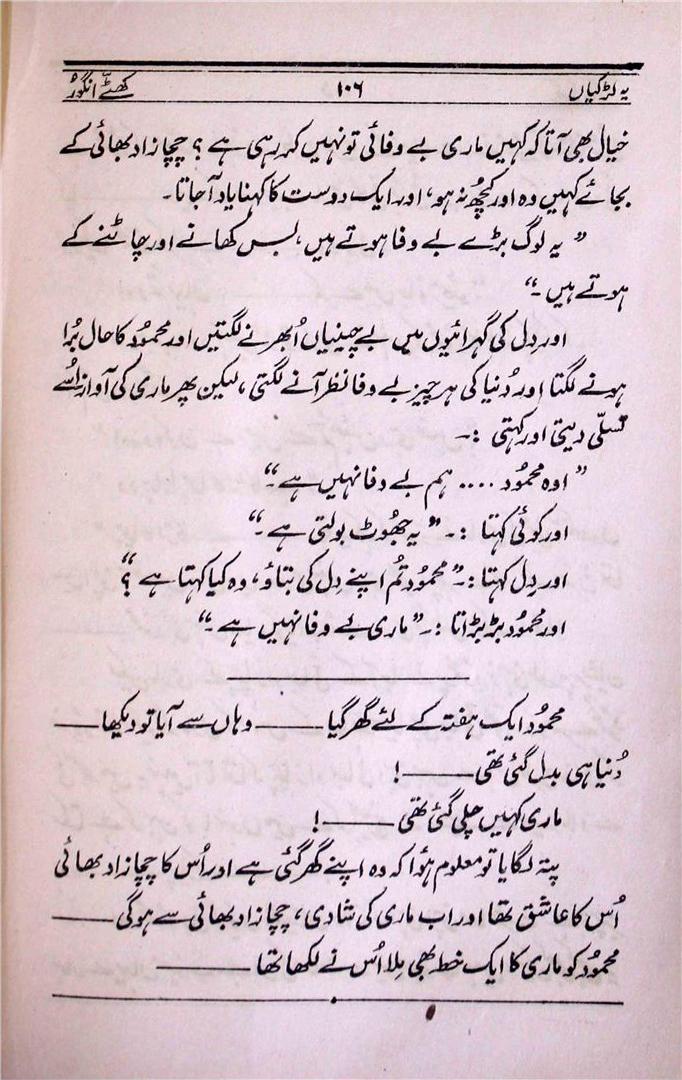 یہ لڑکیاں ۱۰۶ کھٹے انگور
خیال بھی آتا کہ کہیں ماری بے وفائی تو نہیں کر رہی ہے ؟ چچا زاد بھائی کے
بجائے کہیں وہ اور کچھ نہ ہو، اور ایک دوست کا کہنا یاد آجاتا۔
” یہ لوگ بڑے بے وفا ہوتے ہیں، بس کھانے اور چاٹنے کے
ہوتے ہیں ۔“
اور دِل کی گہرائیوں میں بے چینیاں اُبھرنے لگتیں اور محمُود کا حال بُرا
ہونے لگتا اور دُنیا کی ہر چیز بے وفا نظر آنے لگتی، لیکن پھر ماری کی آواز اُسے
تسلّی دیتی اور کہتی :۔
” اوہ محمُود .... ہم بے وفا نہیں ہے ۔“
اور کوئی کہتا :۔ ” یہ جھُوٹ بولتی ہے ۔“
اور دِل کہتا :۔ ” محمُود تُم اپنے دِل کی بتاؤ، وہ کیا کہتا ہے ؟“
اور محمُود بڑبڑاتا :۔ ” ماری بے وفا نہیں ہے ۔“
محمُود ایک ہفتہ کے لئے گھر گیا —— وہاں سے آیا تو دیکھا ——
دُنیا ہی بدل گئی تھی —— !
ماری کہیں چلی گئی تھی —— !
پتہ لگایا تو معلوم ہؤا کہ وہ اپنے گھر گئی ہے اور اُس کا چچا زاد بھائی
اُس کا عاشق تھا اور اب ماری کی شادی، چچا زاد بھائی سے ہوگی ——
محمُود کو ماری کا ایک خط بھی مِلا اُس نے لکھا تھا ——